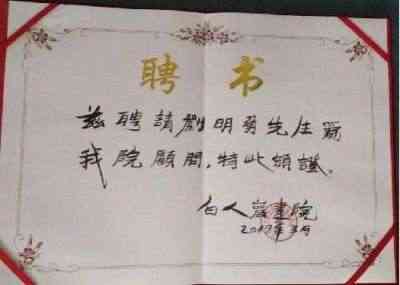 聘书
兹聘請劉明勇先生爲
我院顧問，特此頒證。
白人巖畫院
2017年3月